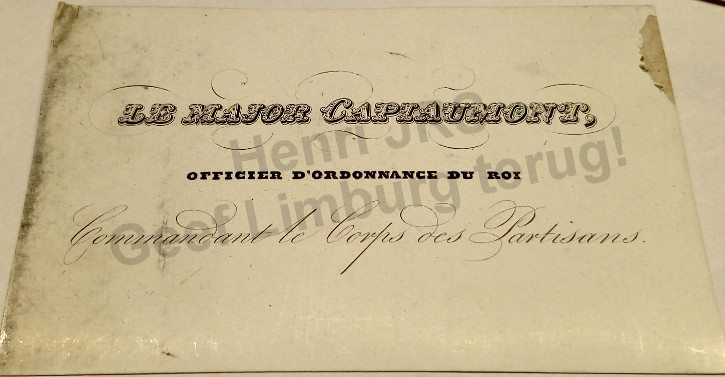 LE MAJOR CAPIAUMONT,
OFFICIER D'ORDONNANCE DU ROI
Commandant le Corps des Partisans.
Henri JRS
Geef Limburg terug!